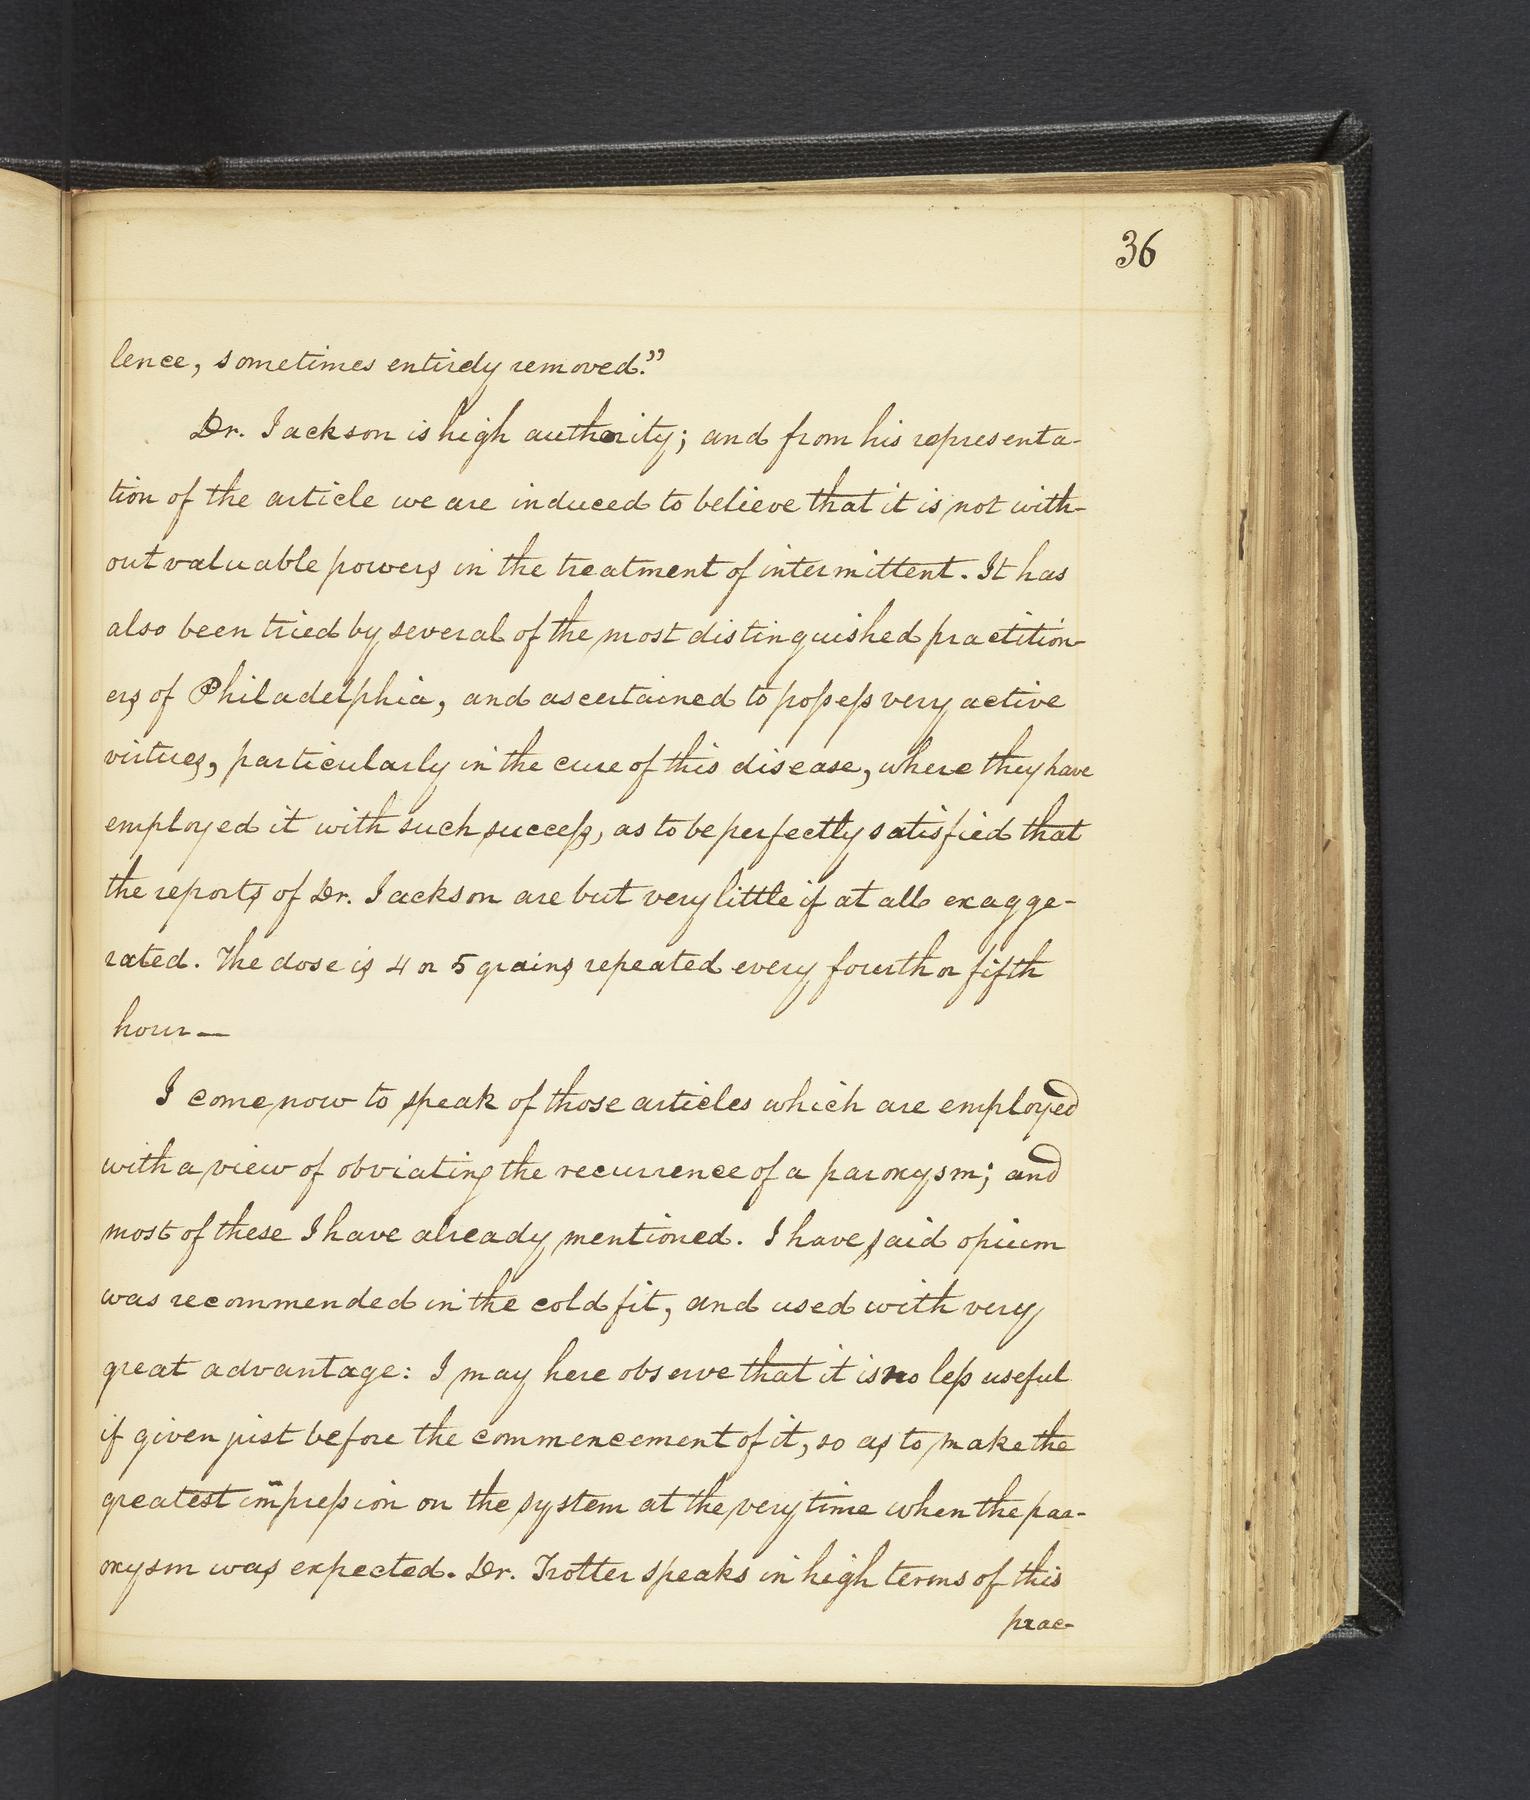 36
lence, sometimes entirely removed."
Dr. Jackson is high authority; and from his representa-
tion of the article we are induced to believe that it is not with-
out valuable powers in the treatment of intermittent. It has
also been tried by several of the most distinguished practition-
ers of Philadelphia, and ascertained to possess very active
virtues, particularly in the cure of this disease, where they have
employed it with such success, as to be perfectly satisfied that
the reports of Dr. Jackson are but very little if at all exagge-
rated. The dose is 4 or 5 grains repeated every fourth or fifth
hour—
I come now to speak of those articles which are employed
with a view of obviating the recurrence of a paroxysm; and
most of these I have already mentioned. I have said opium
was recommended in the cold fit, and used with very
great advantage: I may here observe that it is no less useful
if given just before the commencement of it, so as to make the
greatest impression on the system at the very time when the par-
oxysm was expected. Dr. Trotter speaks in high terms of this
prac-